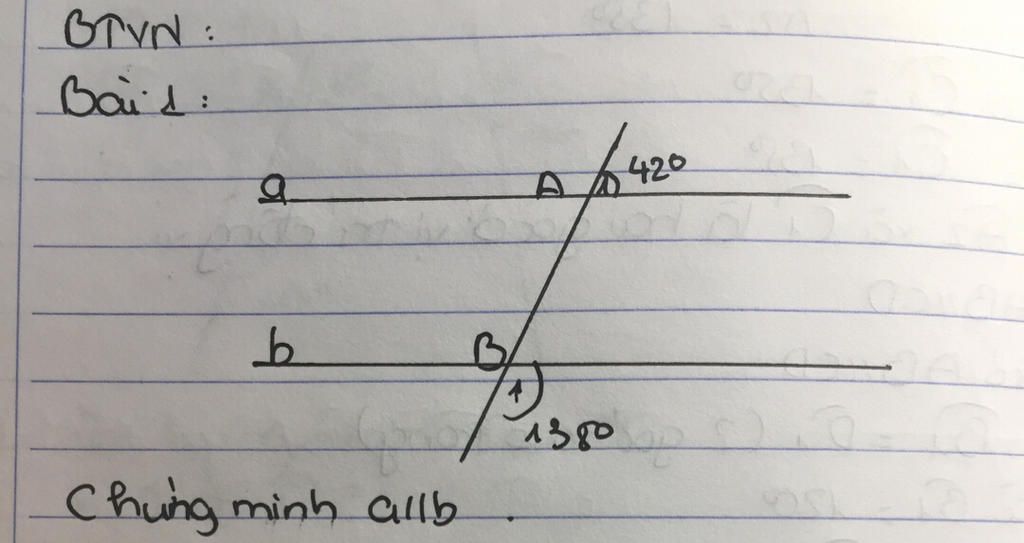 BTVN :
Bài 1 :
a A 42°
b B
1
138°
Chứng minh a//b .